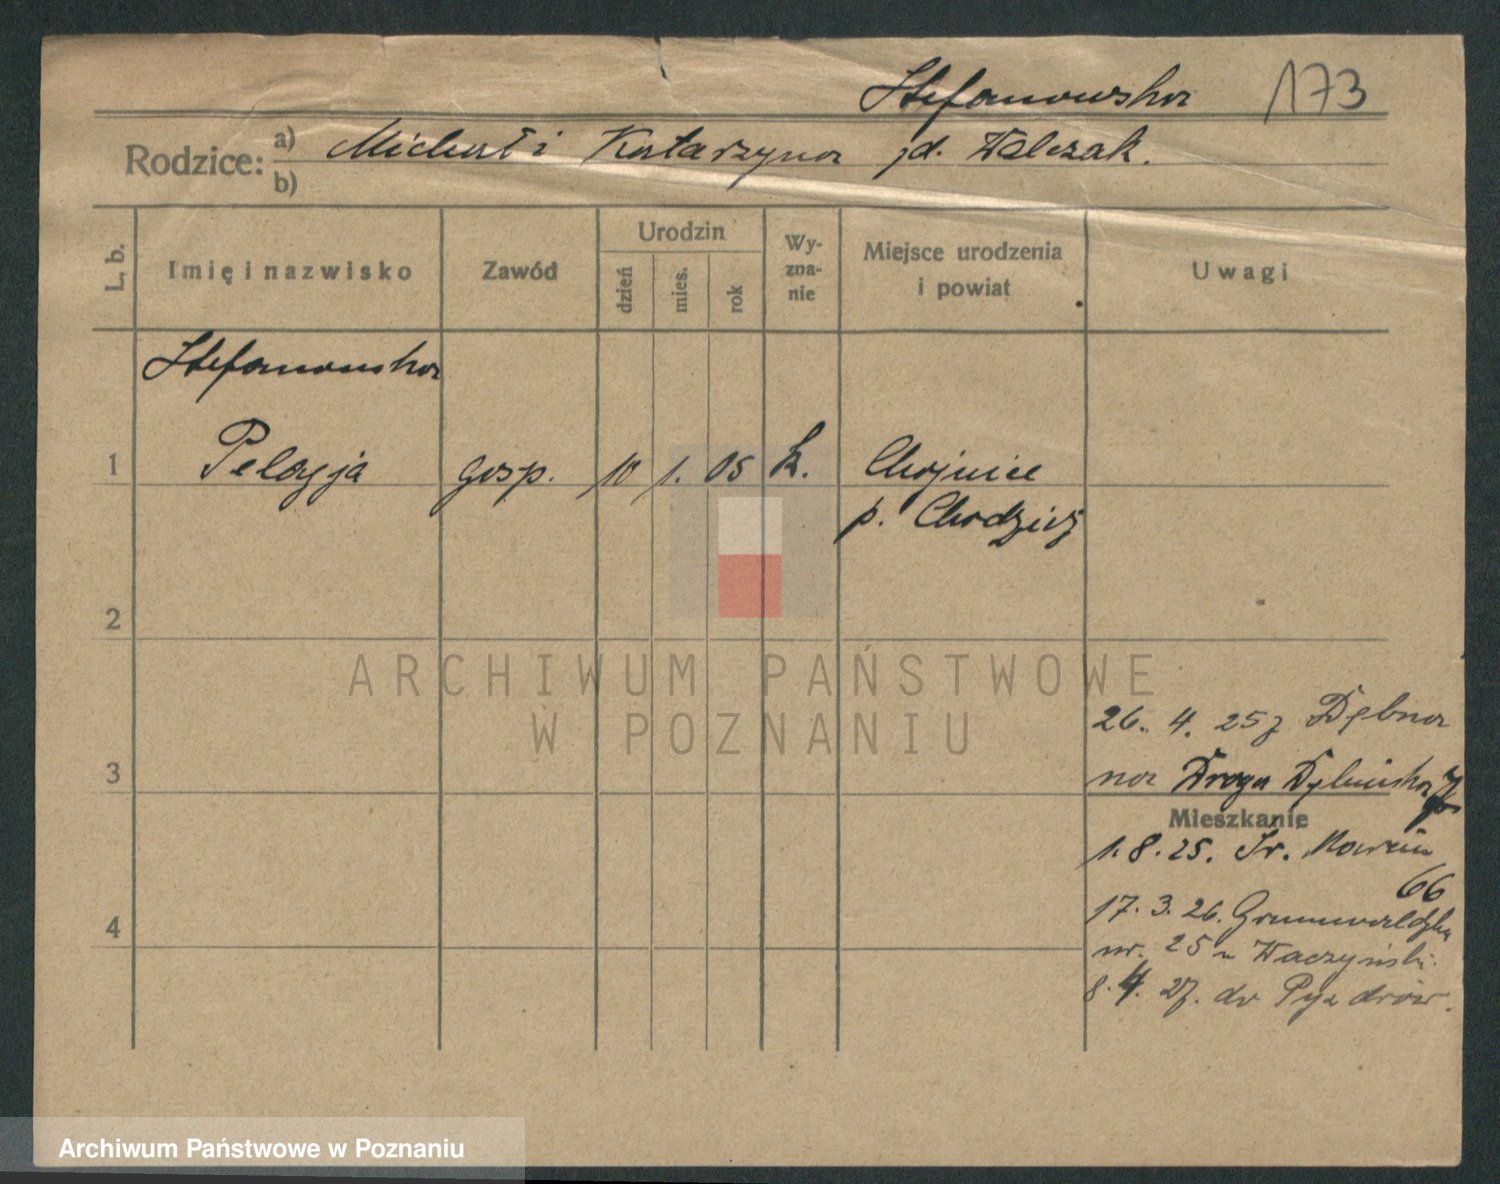 Stefanowska 173
Rodzice: a) Michał i Katarzyna zd. Walczak.
b)
L. b.
Imię i nazwisko
Zawód
Urodzin
dzień
mies.
rok
Wy-
zna-
nie
Miejsce urodzenia
i powiat
Uwagi
Stefanowska
1 Pelagja gosp. 10 1. 05 k. Chojnice
p. Chodzież
2
ARCHIWUM PAŃSTWOWE
W POZNANIU
26. 4. 25 z Dębna
3 na Droga Dębińska
Mieszkanie
1. 8. 25. Św. Marcin
66
17. 3. 26. Grunwaldzka
4 nr. 25 u Waczyński.
8. 4. 27. do Pyzdrów.
Archiwum Państwowe w Poznaniu